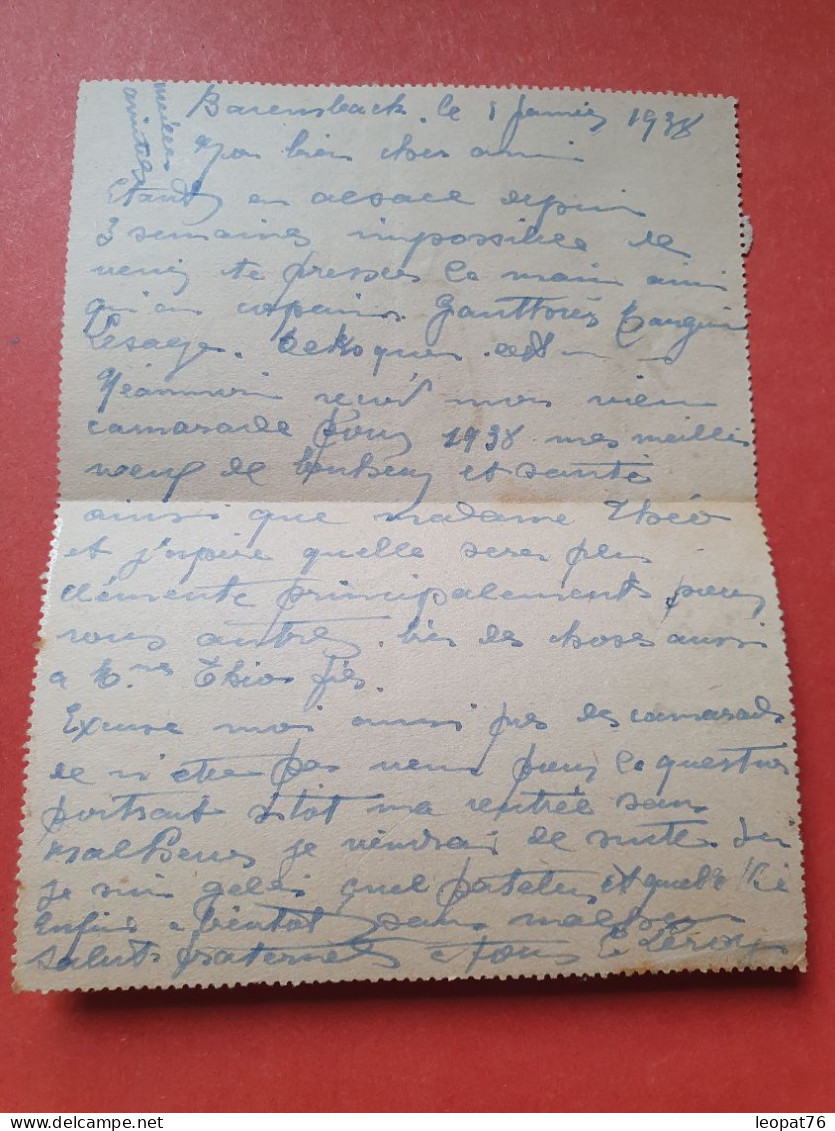 Barensback. le 1 Janvier 1938
Mon bien cher ami
Etant en alsace depuis
3 semaines impossible de
venir te presser la main ainsi
qu'au copains Gauthres
Lesage.
Néanmoin reçoit mon vieux
camarade pour 1938 mes meilles
voeux de bonheur et santé
ainsi que madame Théo
et j'espère quelle sera plus
clémente principalements pour
vous autres. bien des choses aussi
a Mme Théo fils.
Excuse moi aussi près des camarads
de n'etre pas venu pour la question
portrait sitôt ma rentrée sans
malheurs je viendrai de suite.
je suis gelés quel et quelle vie
Enfin a bientôt sans malheur
Saluts fraternels a tous E. Leroy
meilles
amitiés
leopat76